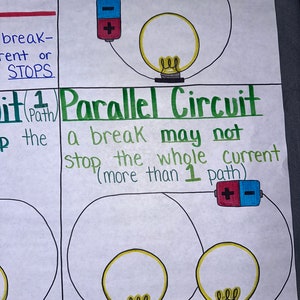 break-
rent or
STOPS
uit 1 (Path)
p the
Parallel Circuit
a break may not
stop the whole current
(more than 1 path)